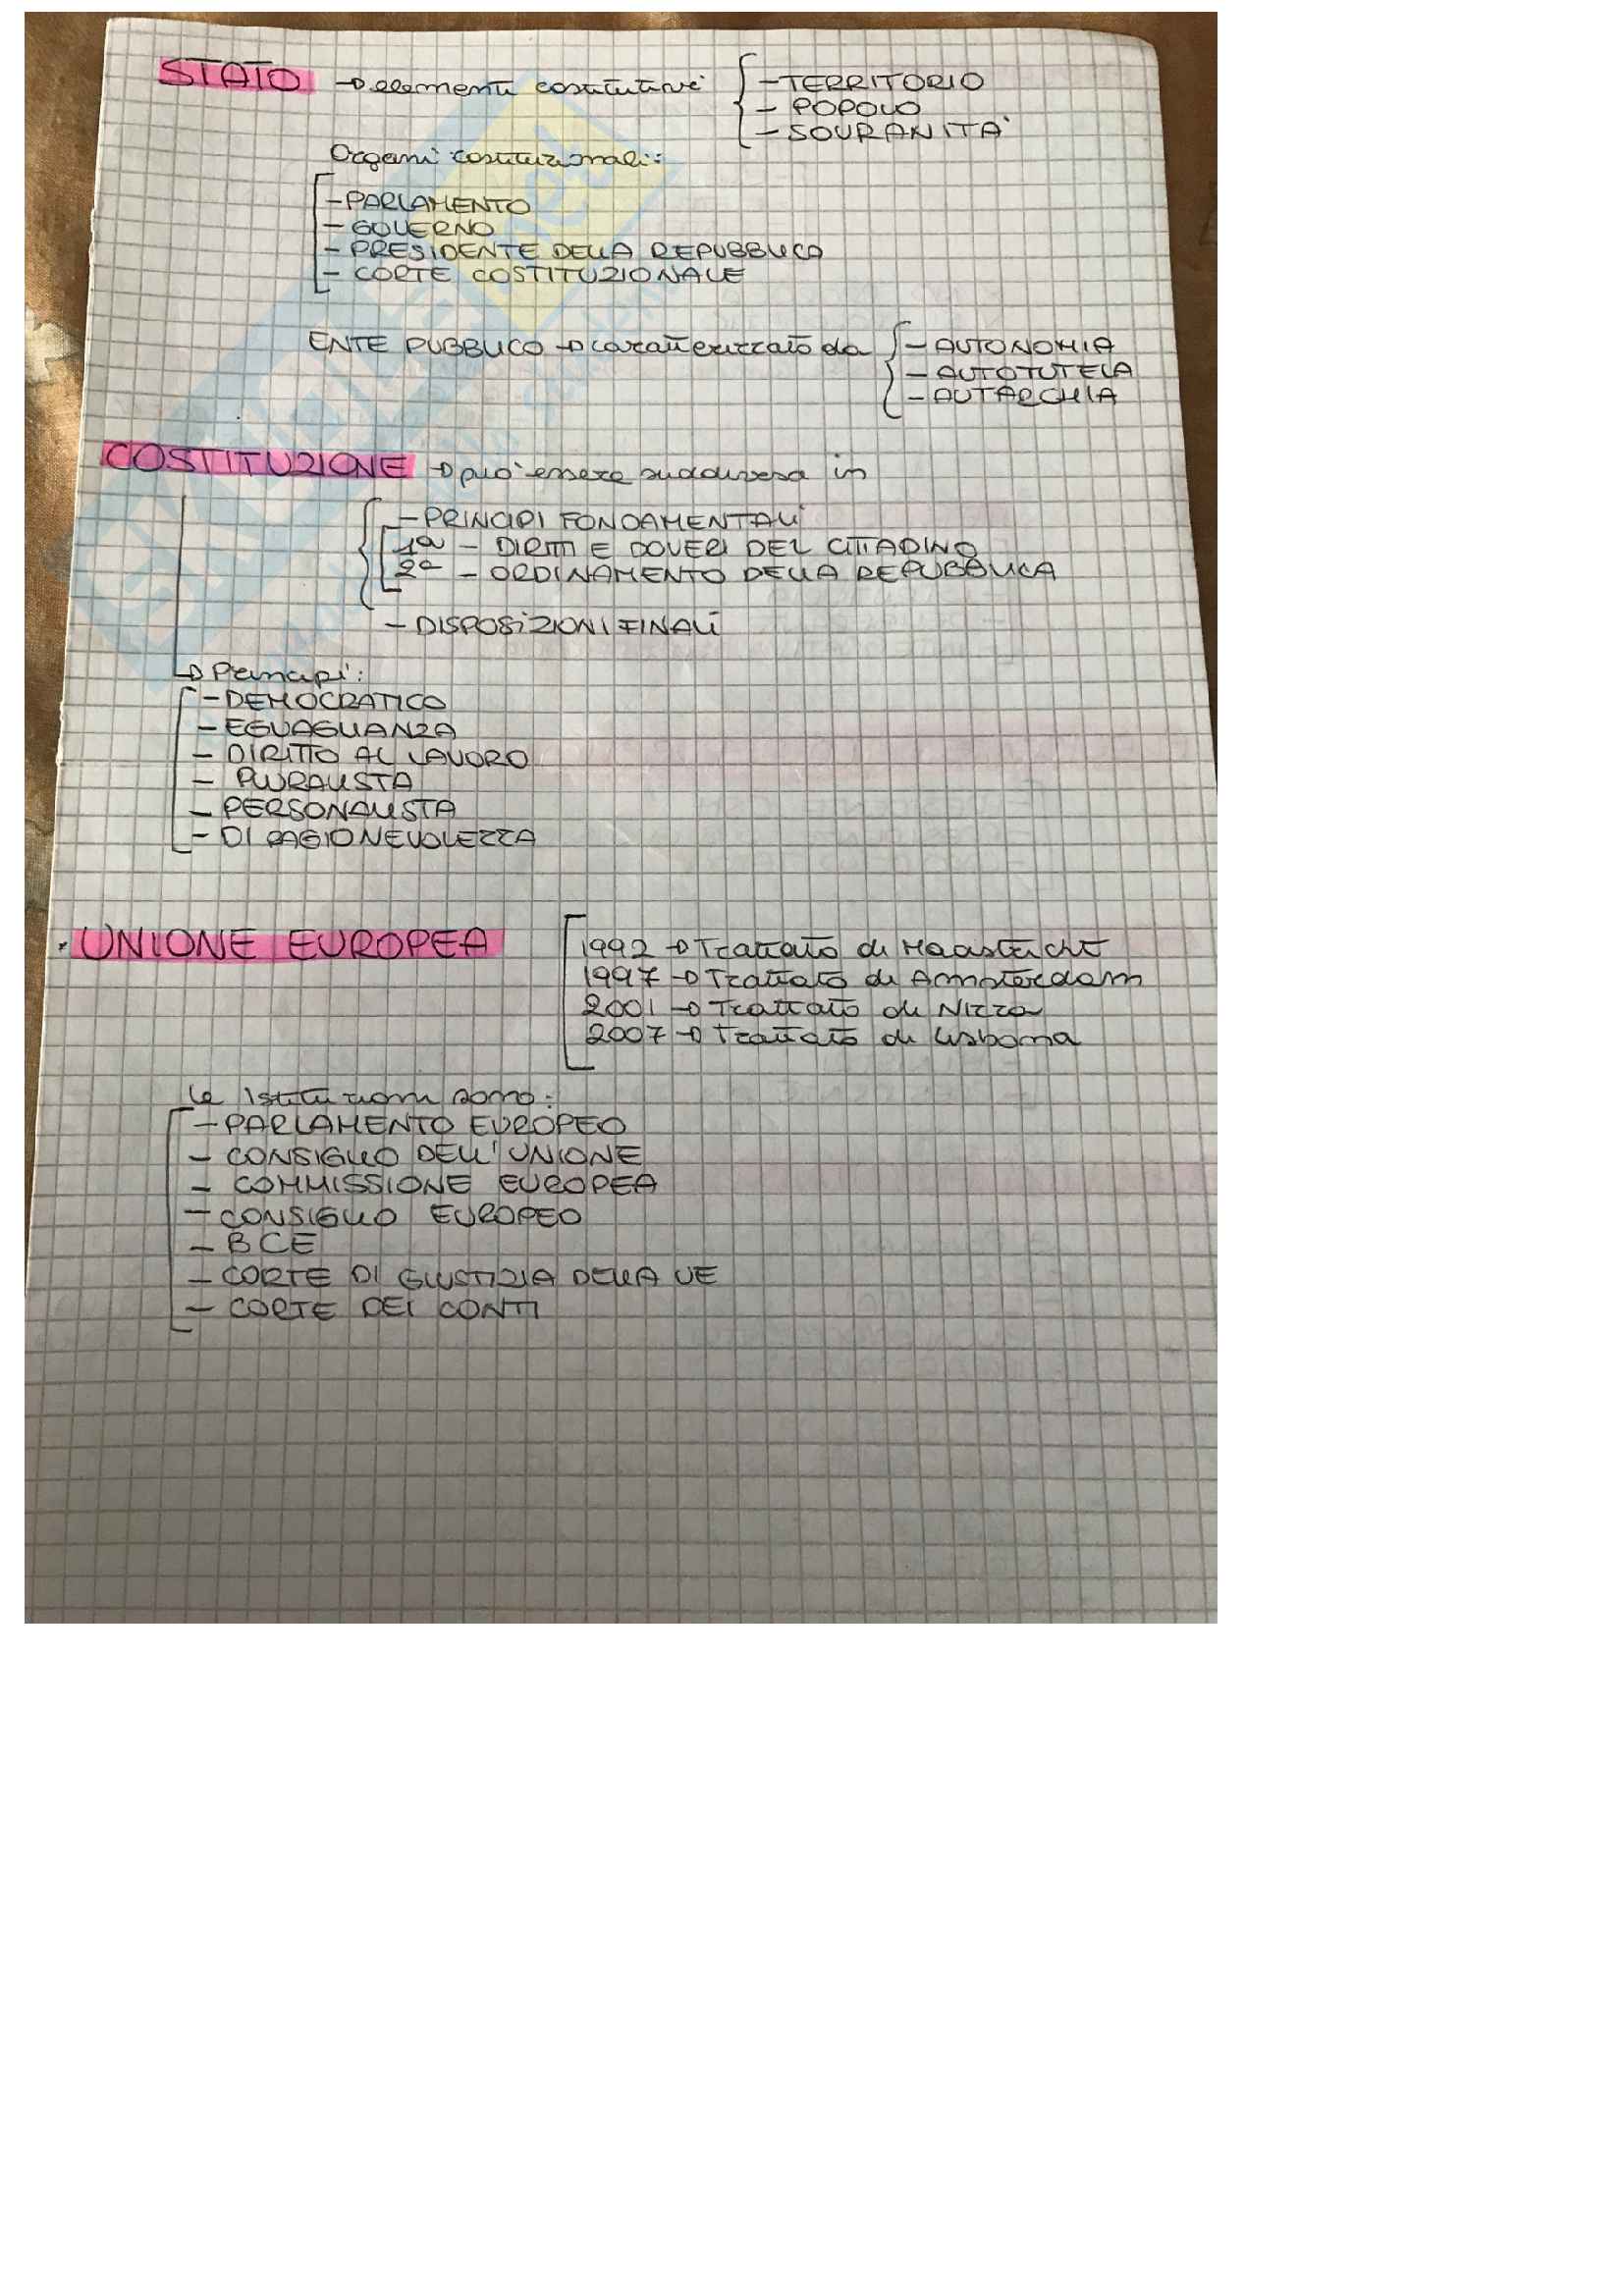 STATO → elementi costitutivi
- TERRITORIO
- POPOLO
- SOVRANITA'
Organi costituzionali:
- PARLAMENTO
- GOVERNO
- PRESIDENTE DELLA REPUBBLICA
- CORTE COSTITUZIONALE
ENTE PUBBLICO → caratterizzato da
- AUTONOMIA
- AUTOTUTELA
- AUTARCHIA
COSTITUZIONE → puo' essere suddivisa in
- PRINCIPI FONDAMENTALI
1ª - DIRITTI E DOVERI DEL CITTADINO
2ª - ORDINAMENTO DELLA REPUBBLICA
- DISPOSIZIONI FINALI
→ Principi:
- DEMOCRATICO
- EGUAGLIANZA
- DIRITTO AL LAVORO
- PLURALISTA
- PERSONALISTA
- DI RAGIONEVOLEZZA
UNIONE EUROPEA
1992 → Trattato di Maastricht
1997 → Trattato di Amsterdam
2001 → Trattato di Nizza
2007 → Trattato di Lisbona
Le Istituzioni sono:
- PARLAMENTO EUROPEO
- CONSIGLIO DELL'UNIONE
- COMMISSIONE EUROPEA
- CONSIGLIO EUROPEO
- BCE
- CORTE DI GIUSTIZIA DELLA UE
- CORTE DEI CONTI